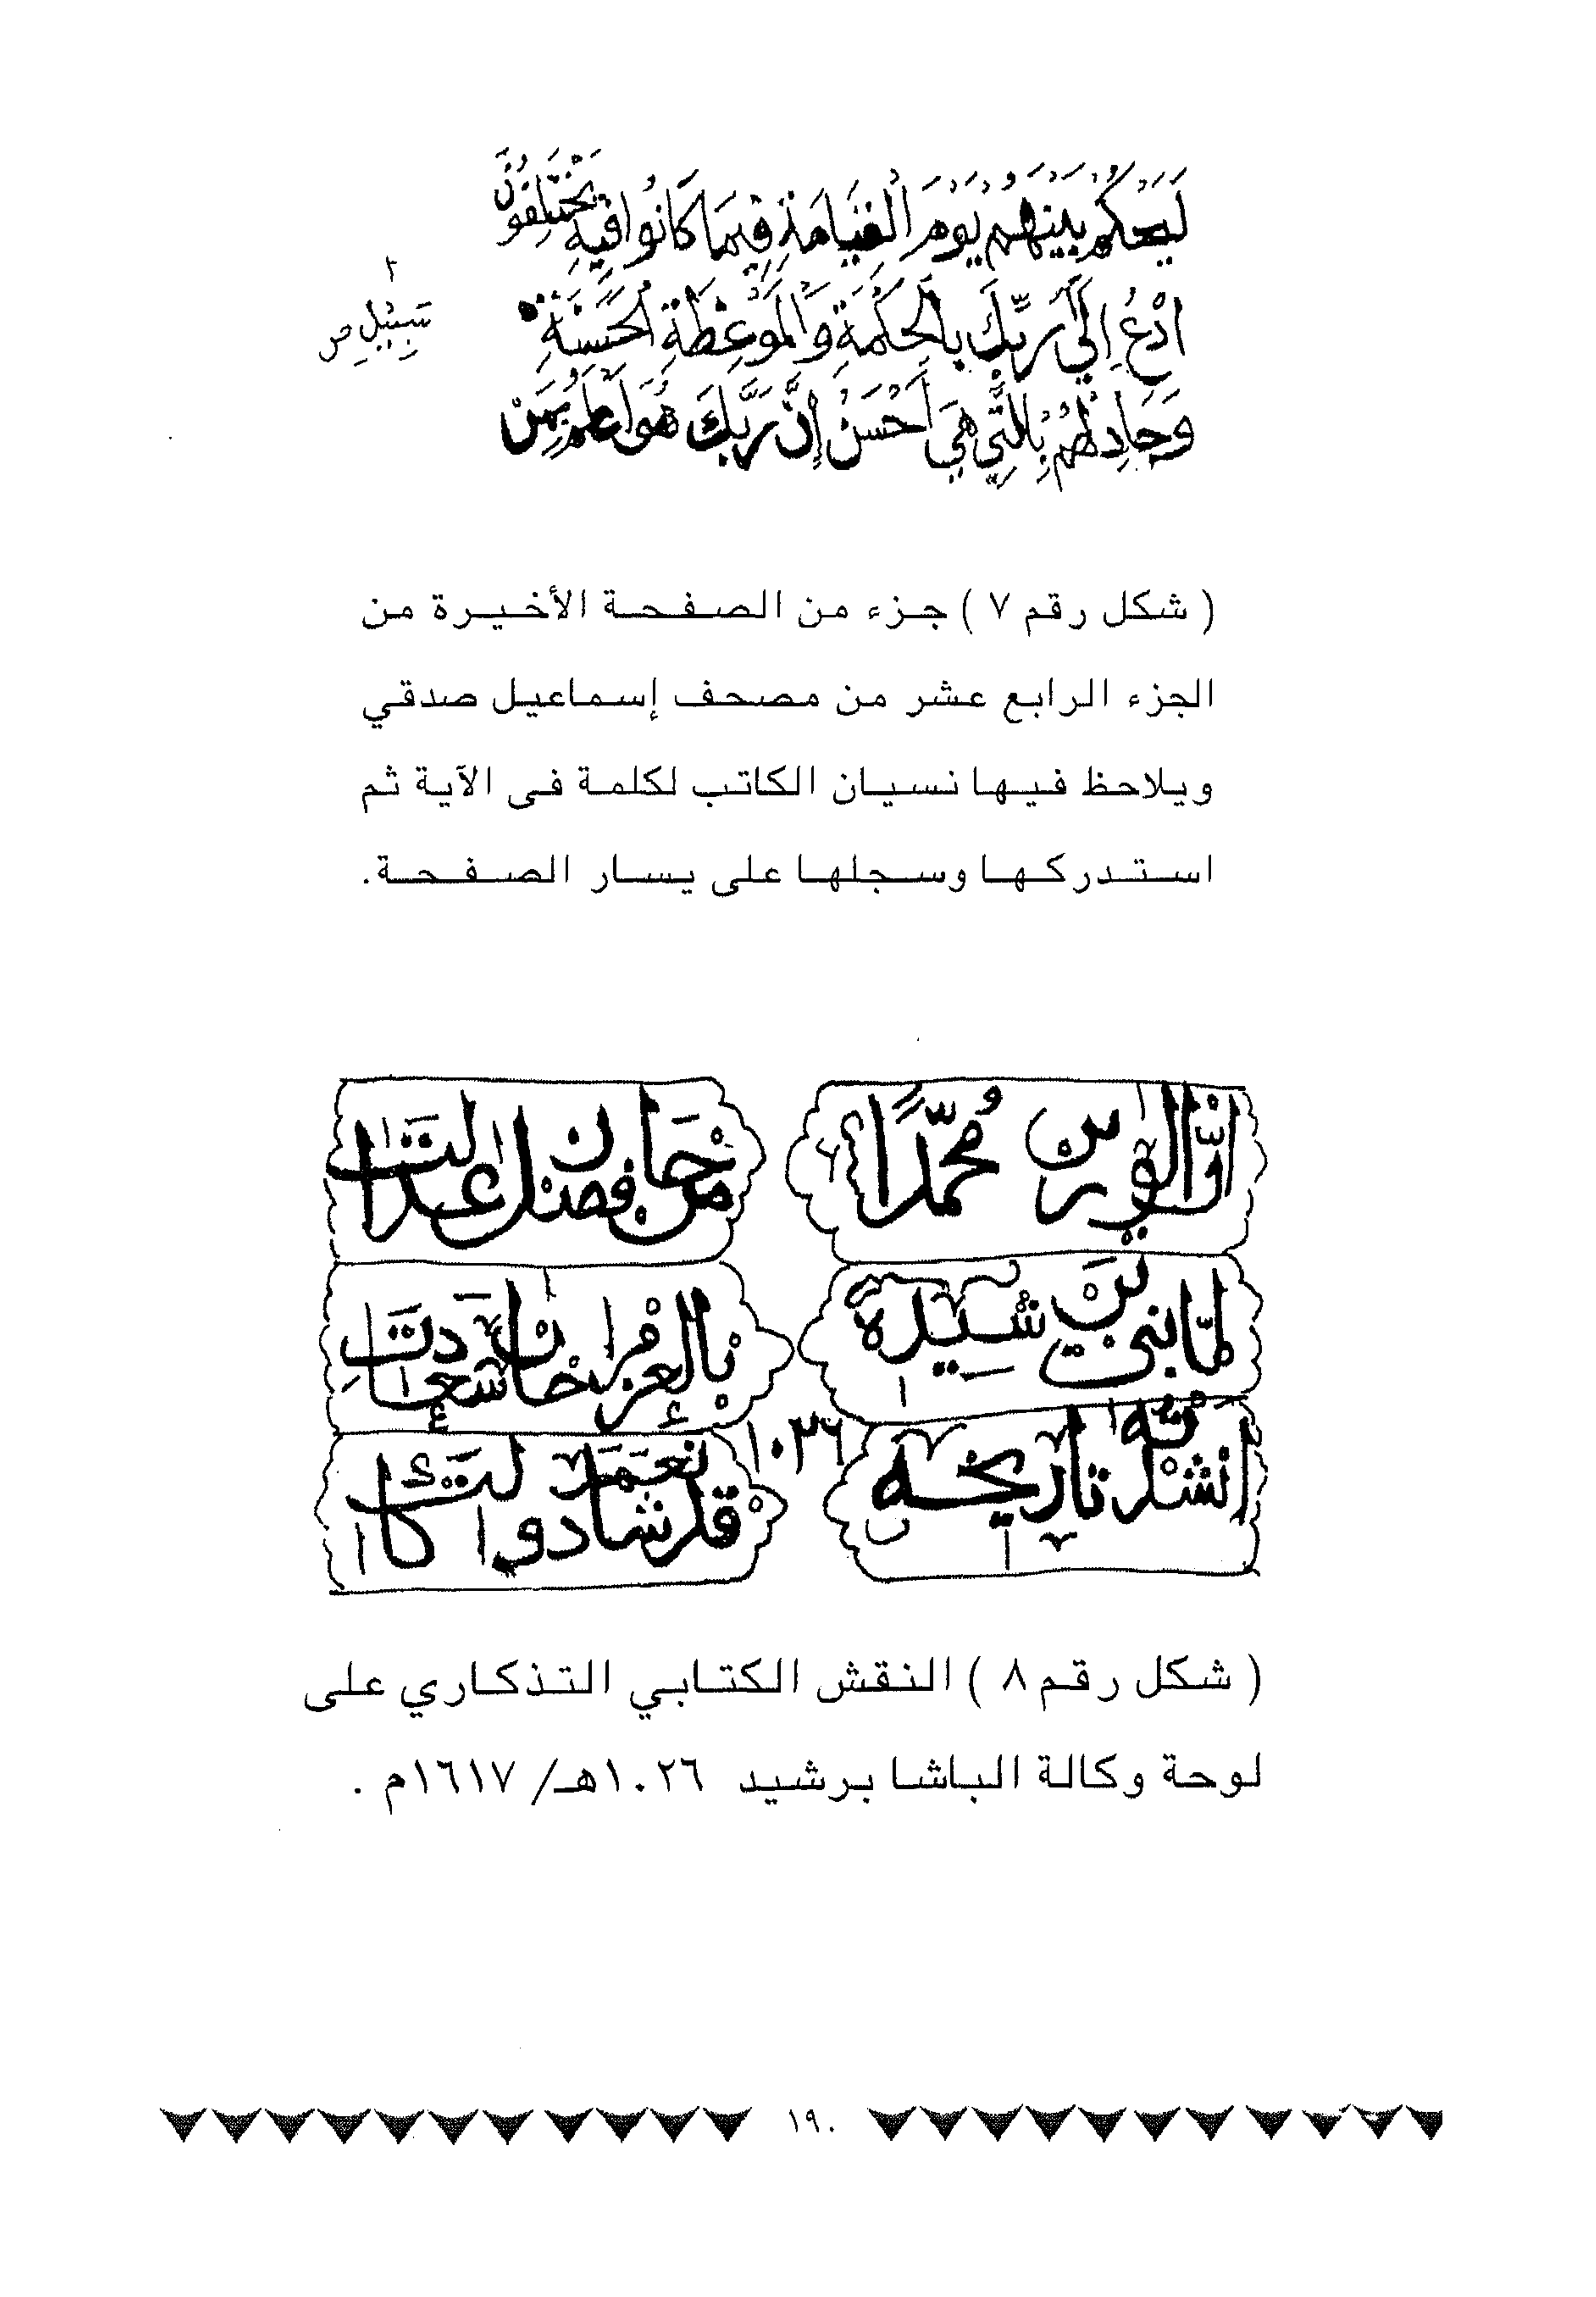 لَيَحْكُمُ بَيْنَهُمْ يَوْمَ الْقِيَامَةِ فِيمَا كَانُوا فِيهِ يَخْتَلِفُونَ
ادْعُ إِلَى رَبِّكَ بِالْحِكْمَةِ وَالْمَوْعِظَةِ الْحَسَنَةِ
سَبِيْلِ ص
وَجَادِلْهُمْ بِالَّتِي هِيَ أَحْسَنُ إِنَّ رَبَّكَ هُوَ أَعْلَمُ بِمَنْ
( شكل رقم ٧ ) جزء من الصفحة الأخيرة من
الجزء الرابع عشر من مصحف إسماعيل صدقي
ويلاحظ فيها نسيان الكاتب لكلمة فى الآية ثم
استدركها وسجلها على يسار الصفحة.
ان الوزير محمدا
من حاز فضل
لما بنى شيده
بالعز
انشد تاريخه
١٠٢٦
قد شادوا
( شكل رقم ٨ ) النقش الكتابي التذكاري على
لوحة وكالة الباشا برشيد ١٠٢٦هـ/ ١٦١٧م .
١٩٠